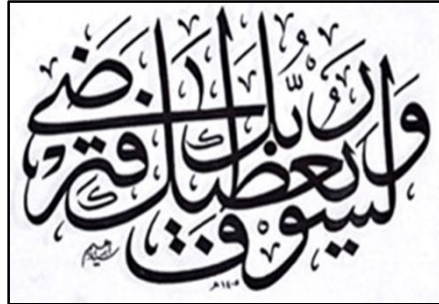 ولسوف يعطيك ربك فترضى
١٤٠٥هـ